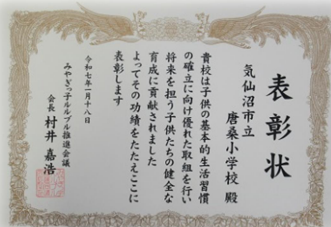 表彰状
気仙沼市立
唐桑小学校 殿
貴校は子供の基本的生活習慣
の確立に向け優れた取組を行い
将来を担う子供たちの健全な
育成に貢献されました
よってその功績をたたえここに
表彰します
令和七年一月十八日
みやぎっ子ルルブル推進会議
会長 村井嘉浩